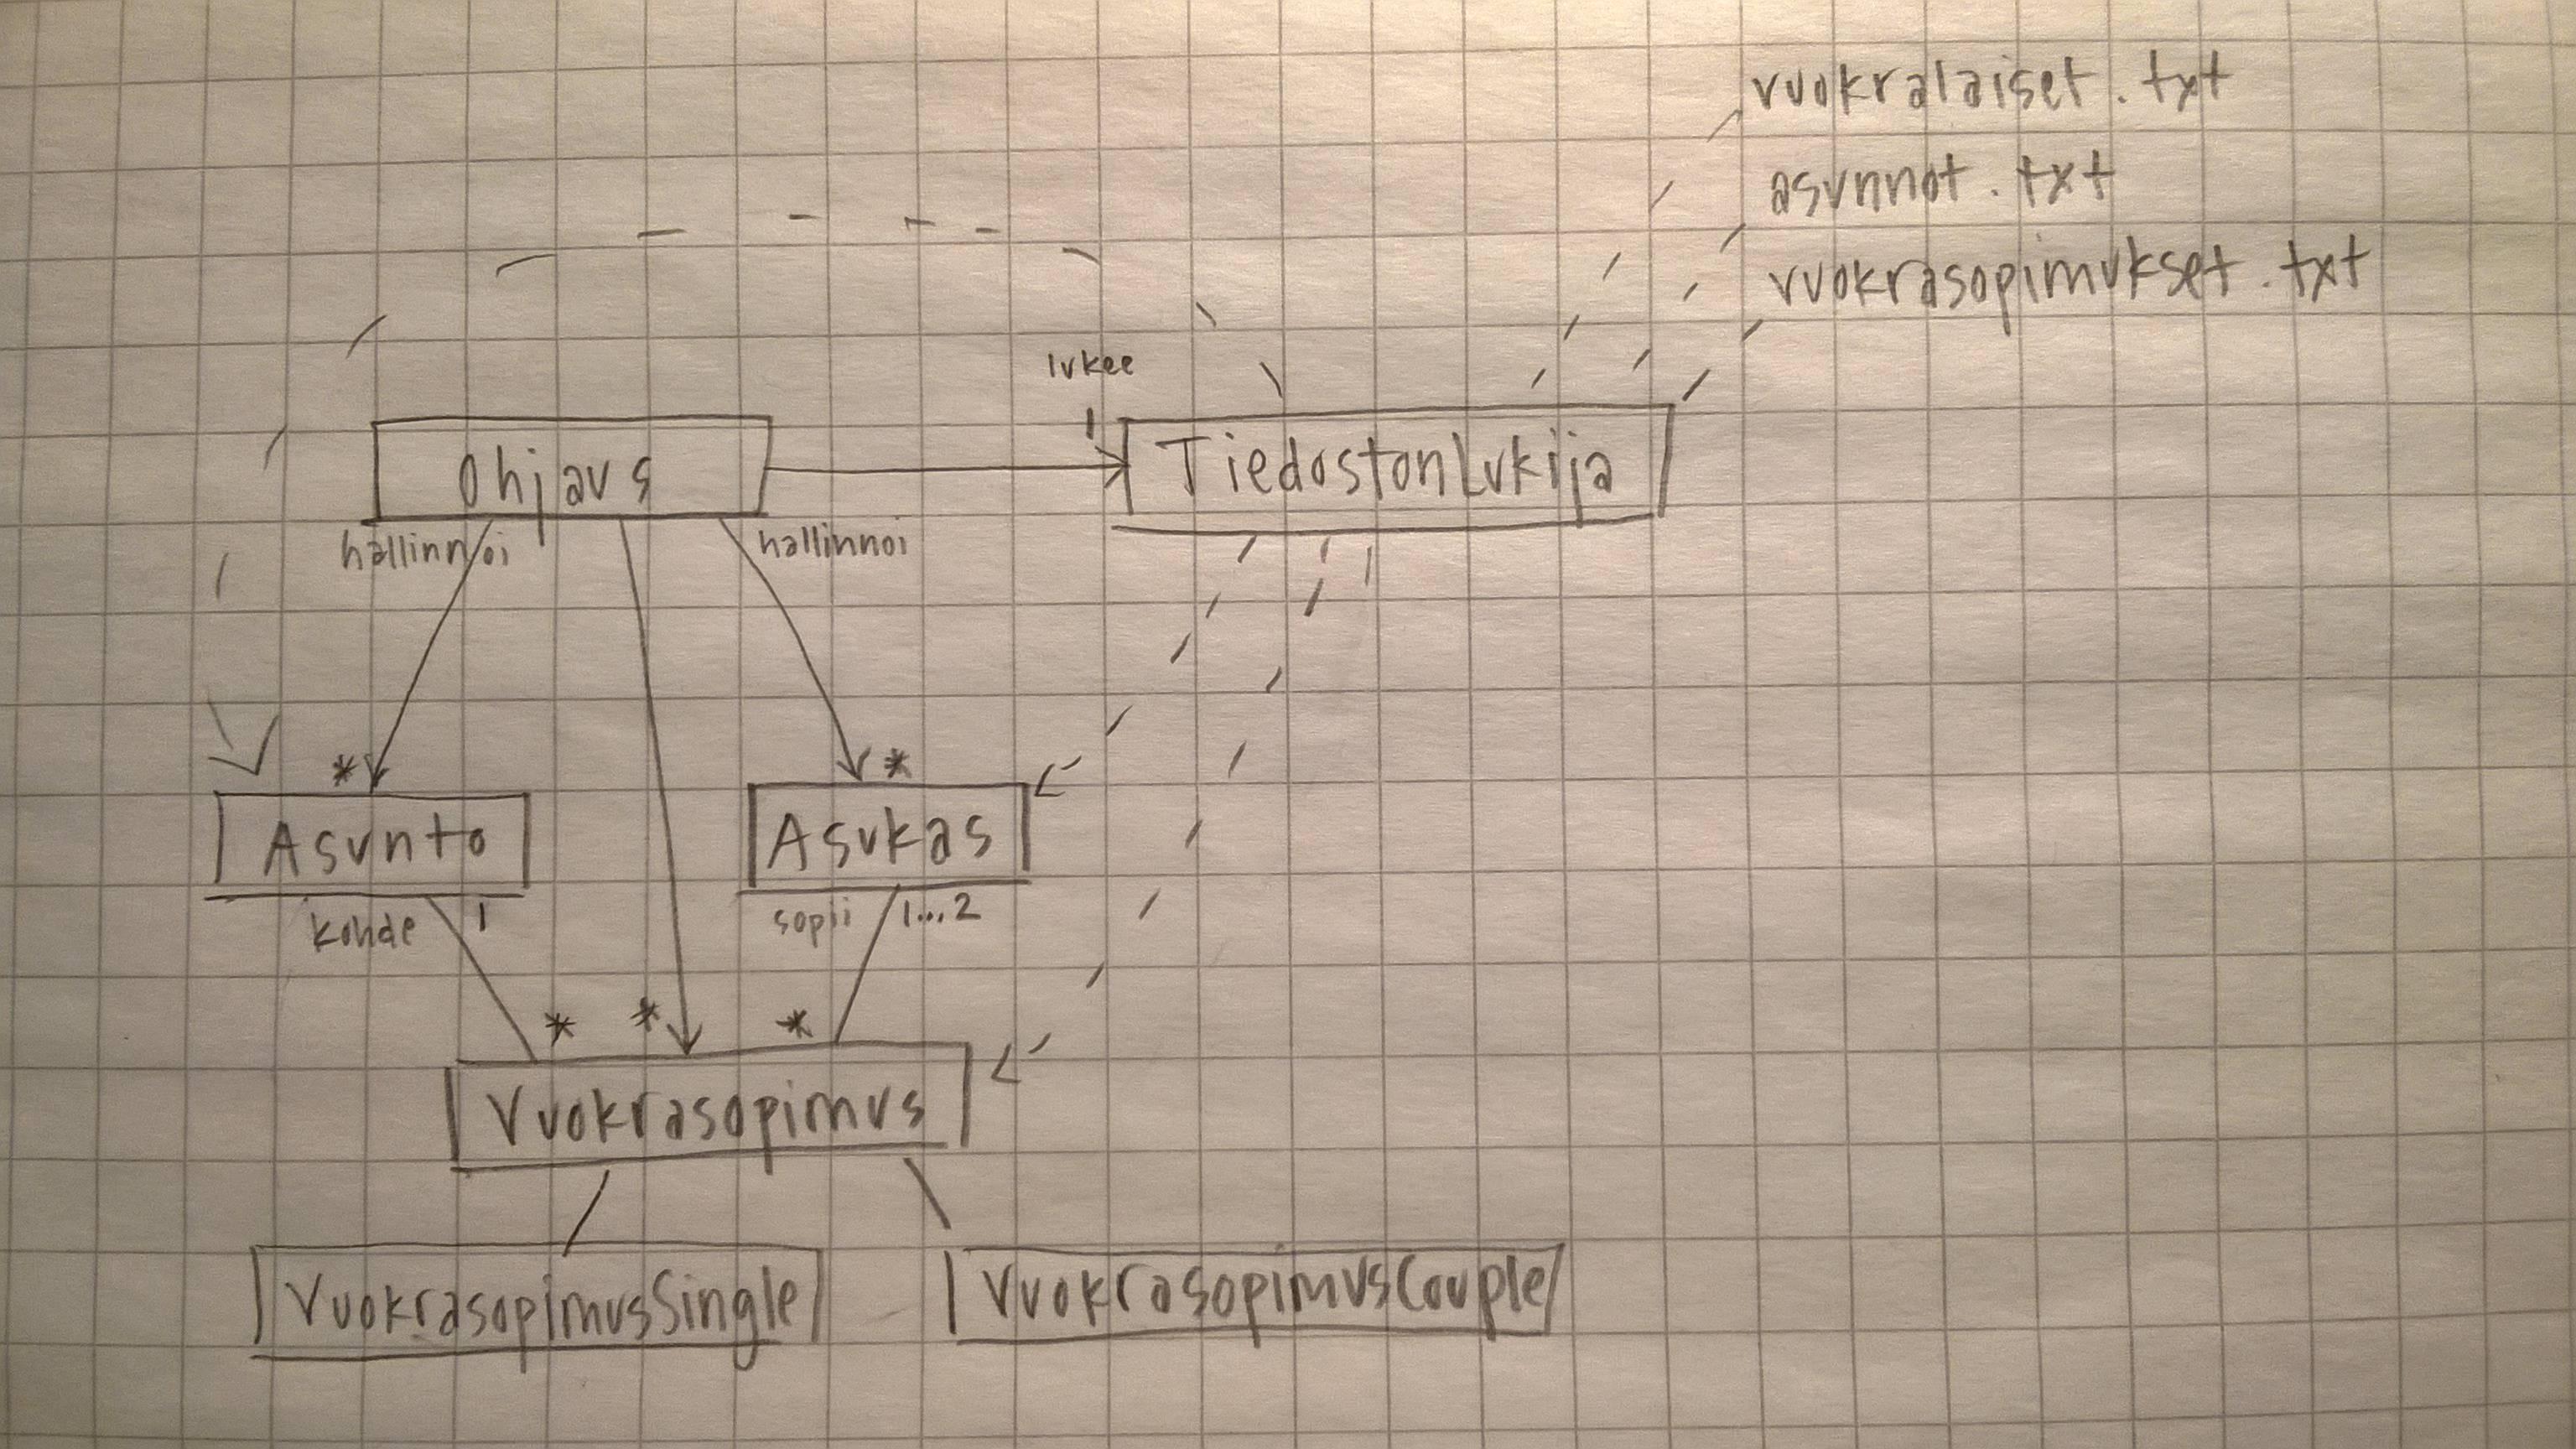 vuokralaiset.txt
asunnot.txt
vuokrasopimukset.txt
lukee
1
Ohjaus
TiedostonLukija
hallinnoi
hallinnoi
*
*
Asunto
Asukas
kohde
1
sopii
1...2
*
*
*
Vuokrasopimus
VuokrasopimusSingle
VuokrasopimusCouple